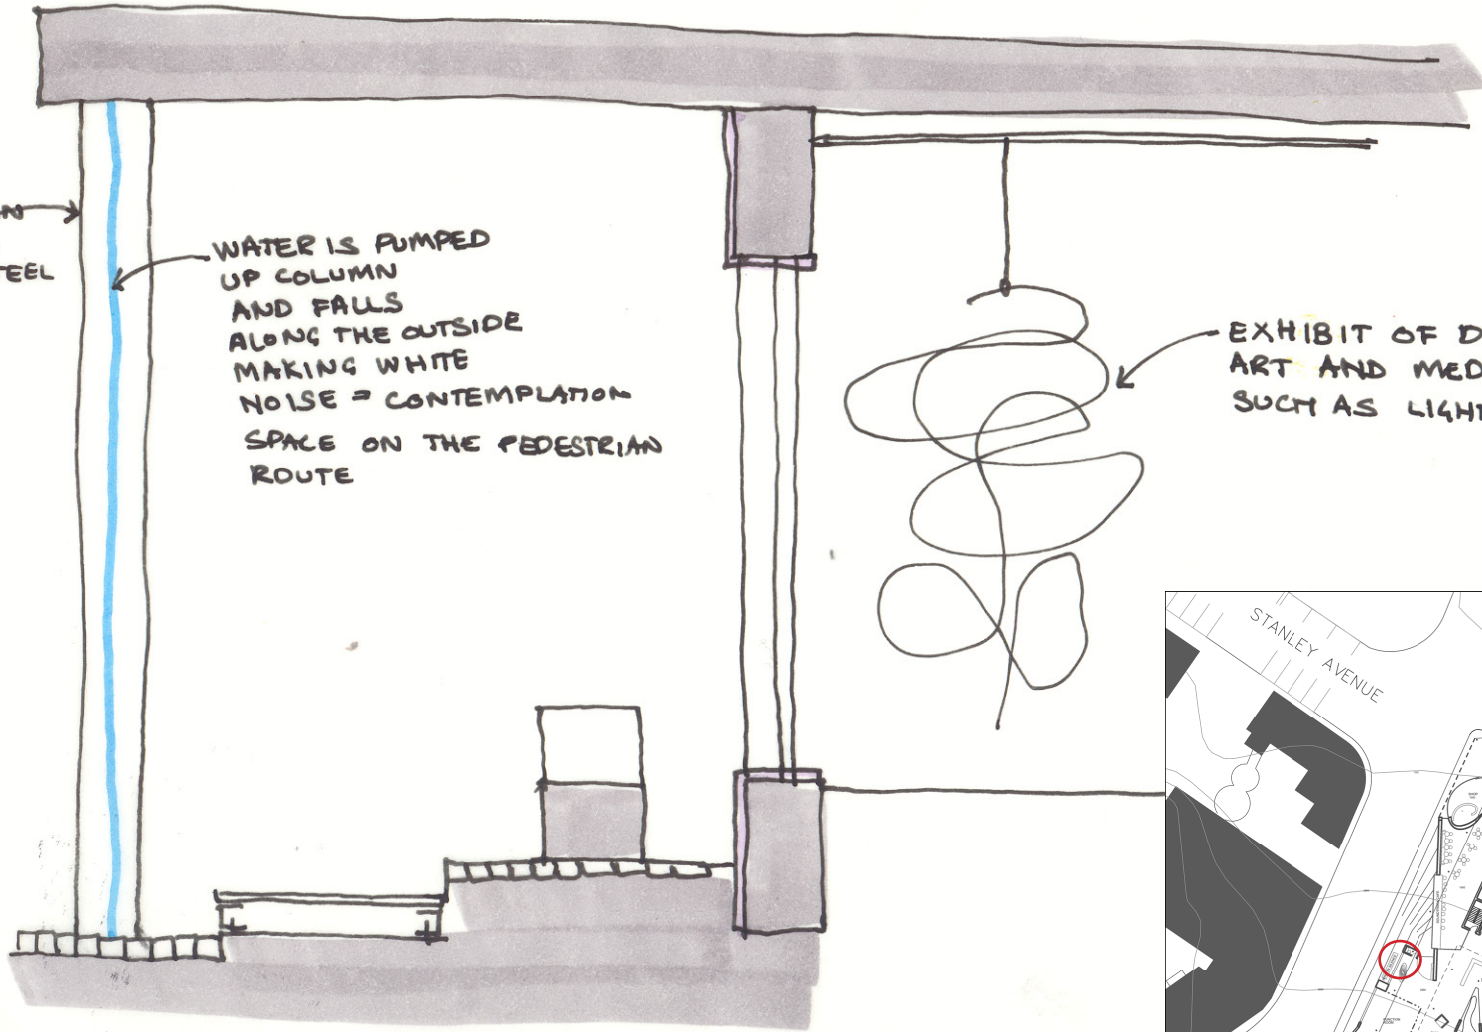 N
TEEL
WATER IS PUMPED
UP COLUMN
AND FALLS
ALONG THE OUTSIDE
MAKING WHITE
NOISE = CONTEMPLATION
SPACE ON THE PEDESTRIAN
ROUTE
EXHIBIT OF D
ART AND MED
SUCH AS LIGHT
STANLEY AVENUE